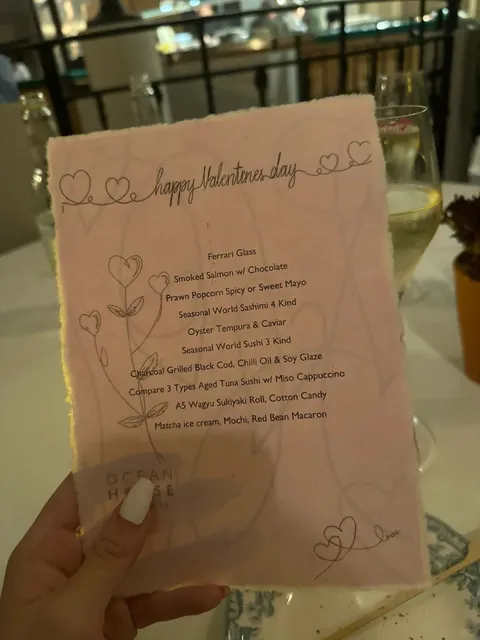 happy Valentines day
Ferrari Glass
Smoked Salmon w/ Chocolate
Prawn Popcorn Spicy or Sweet Mayo
Seasonal World Sashimi 4 Kind
Oyster Tempura & Caviar
Seasonal World Sushi 3 Kind
Charcoal Grilled Black Cod, Chilli Oil & Soy Glaze
Compare 3 Types Aged Tuna Sushi w/ Miso Cappuccino
A5 Wagyu Sukiyaki Roll, Cotton Candy
Matcha ice cream, Mochi, Red Bean Macaron
OCEAN
HOUSE
love